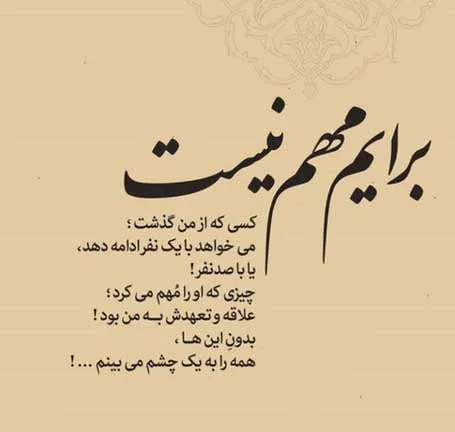 برایم مهم نیست
کسی که از من گذشت ؛
می خواهد با یک نفر ادامه دهد،
یا با صد نفر !
چیزی که او را مُهم می کرد ؛
علاقه و تعهدش بــه من بود !
بدونِ این هـا ،
همه را به یک چشم می بینم ... !